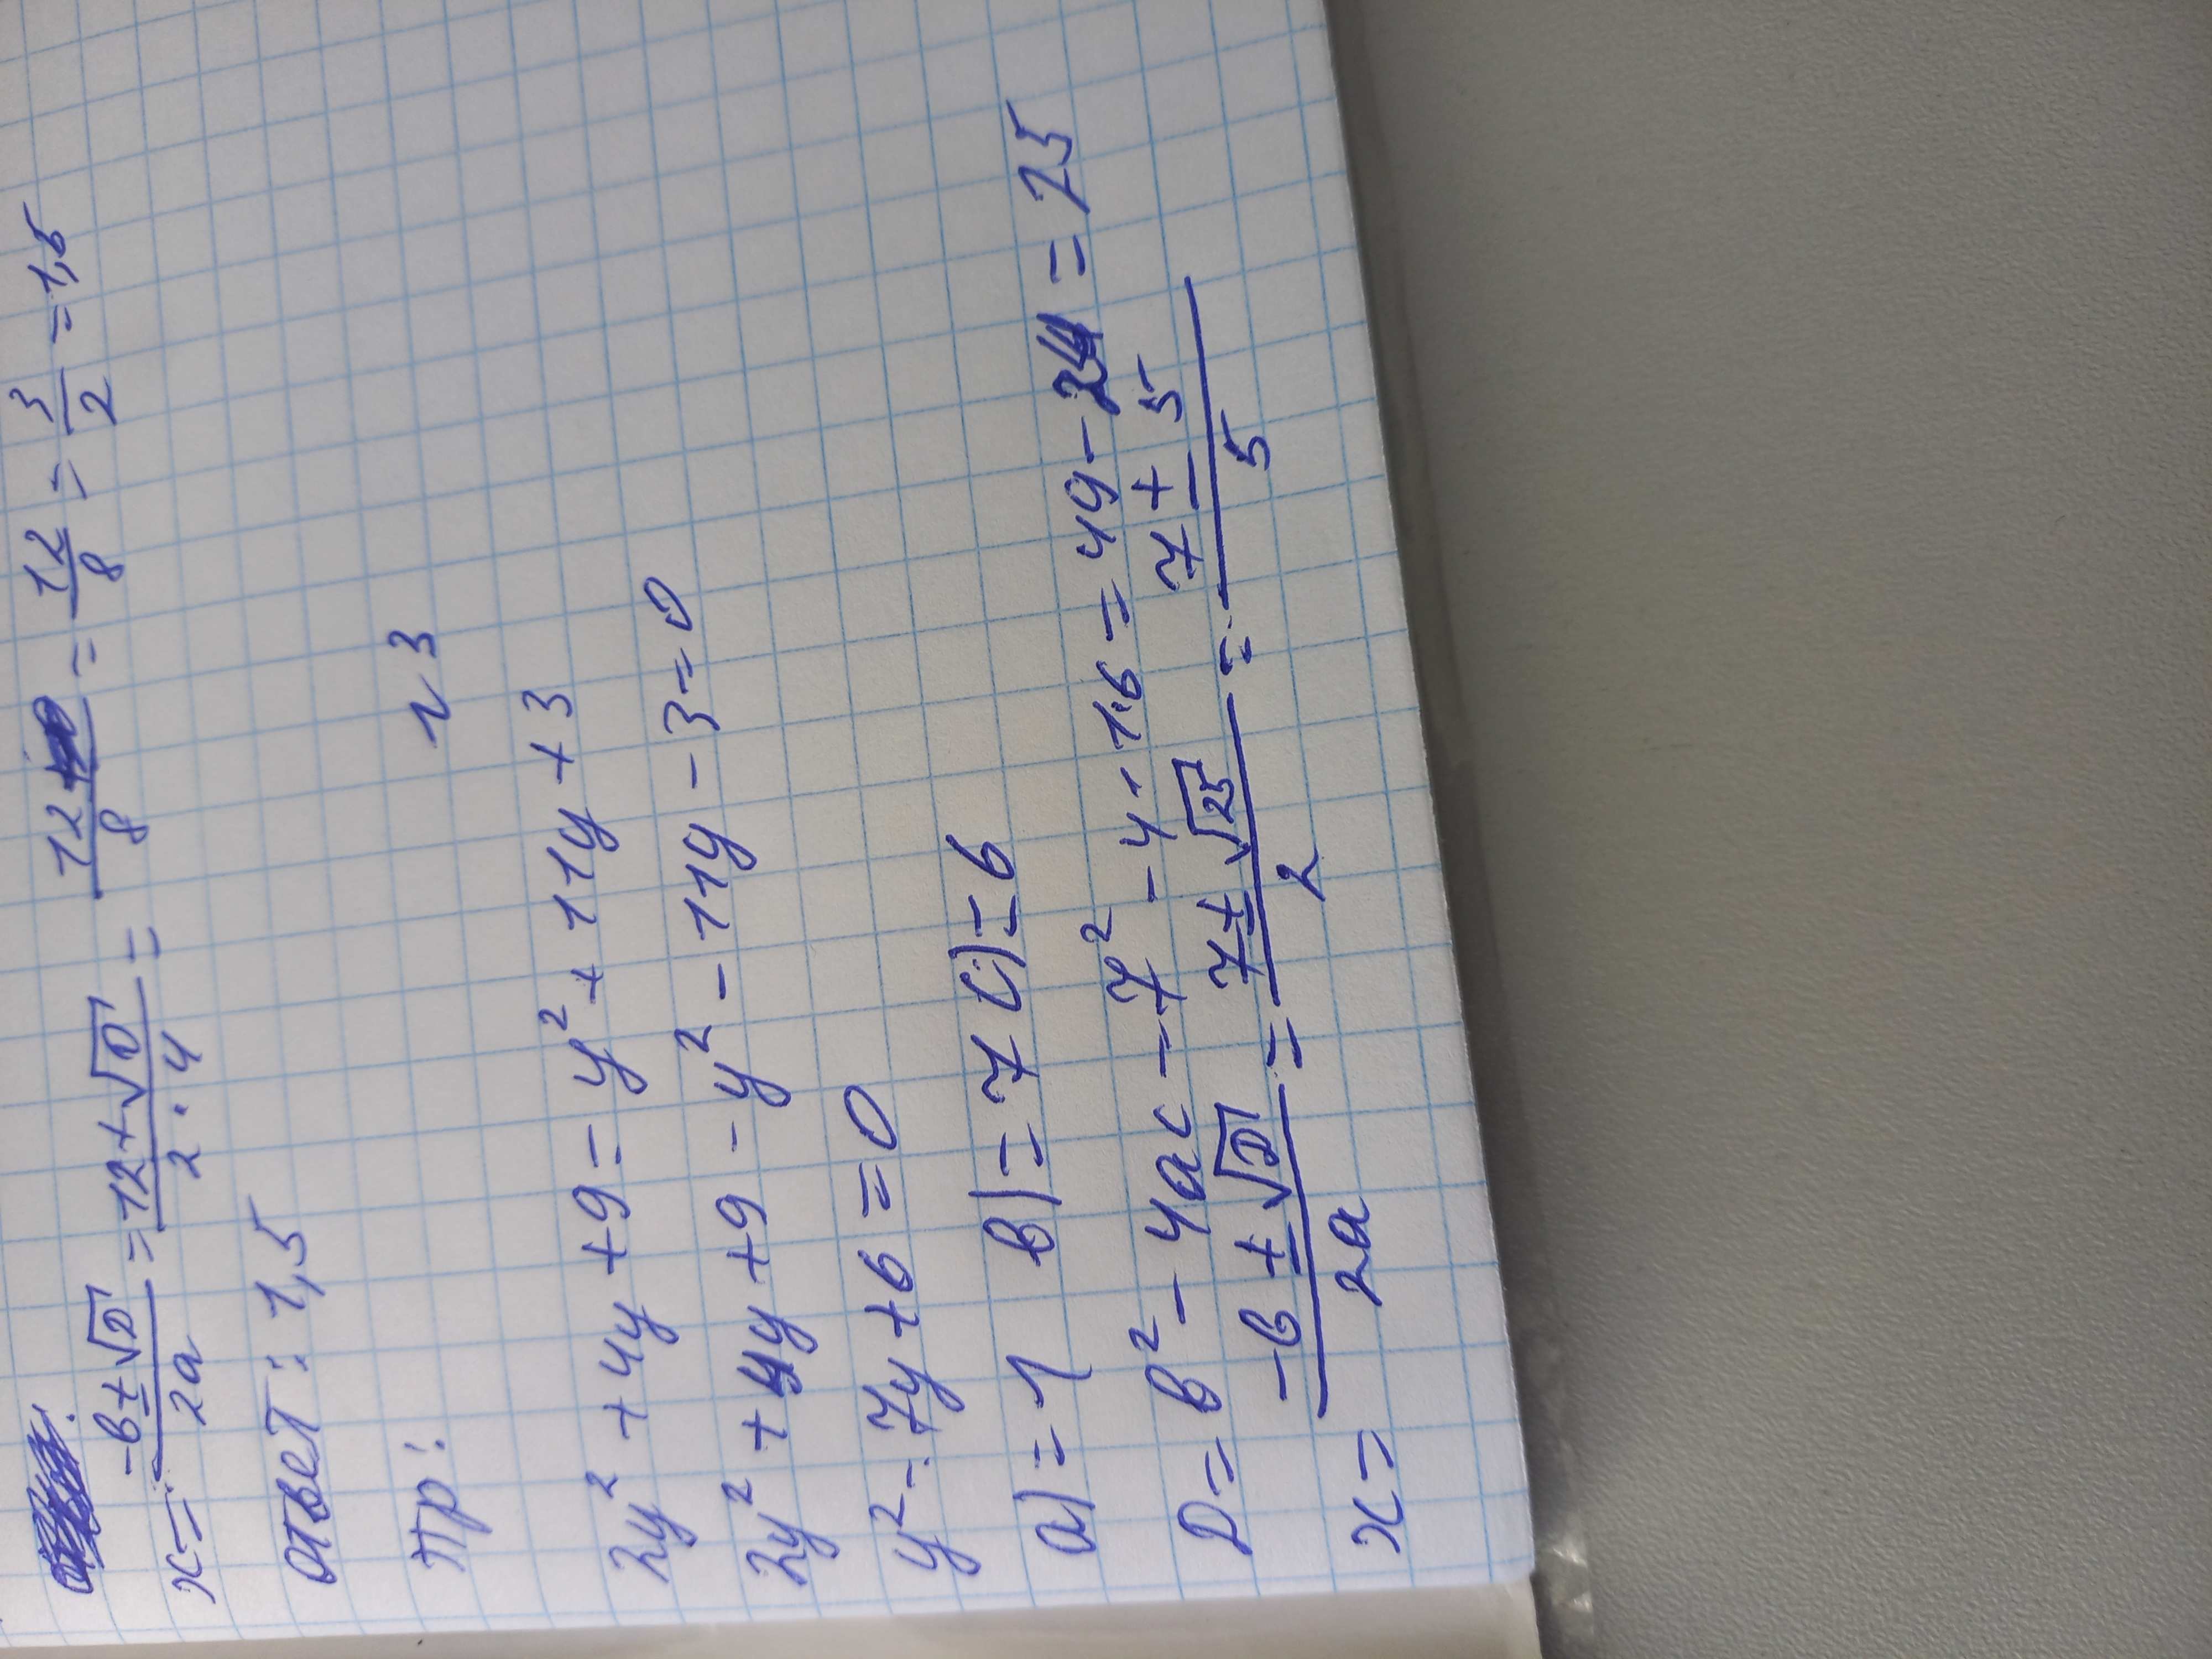 x = (-b ± √D) / 2a = (12 ± √0) / (2 · 4) = 12 / 8 = 12 / 8 = 3 / 2 = 1,5
ответ: 1,5
Пр: N 3
2y² + 4y + 9 = y² + 11y + 3
2y² + 4y + 9 - y² - 11y - 3 = 0
y² - 7y + 6 = 0
a) = 1 b) = 7 c) = 6
D = b² - 4ac - 7² - 4 · 1·6 = 49 - 24 = 25
x = (-b ± √D) / 2a = (7 ± √25) / 2 = (7 ± 5) / 5